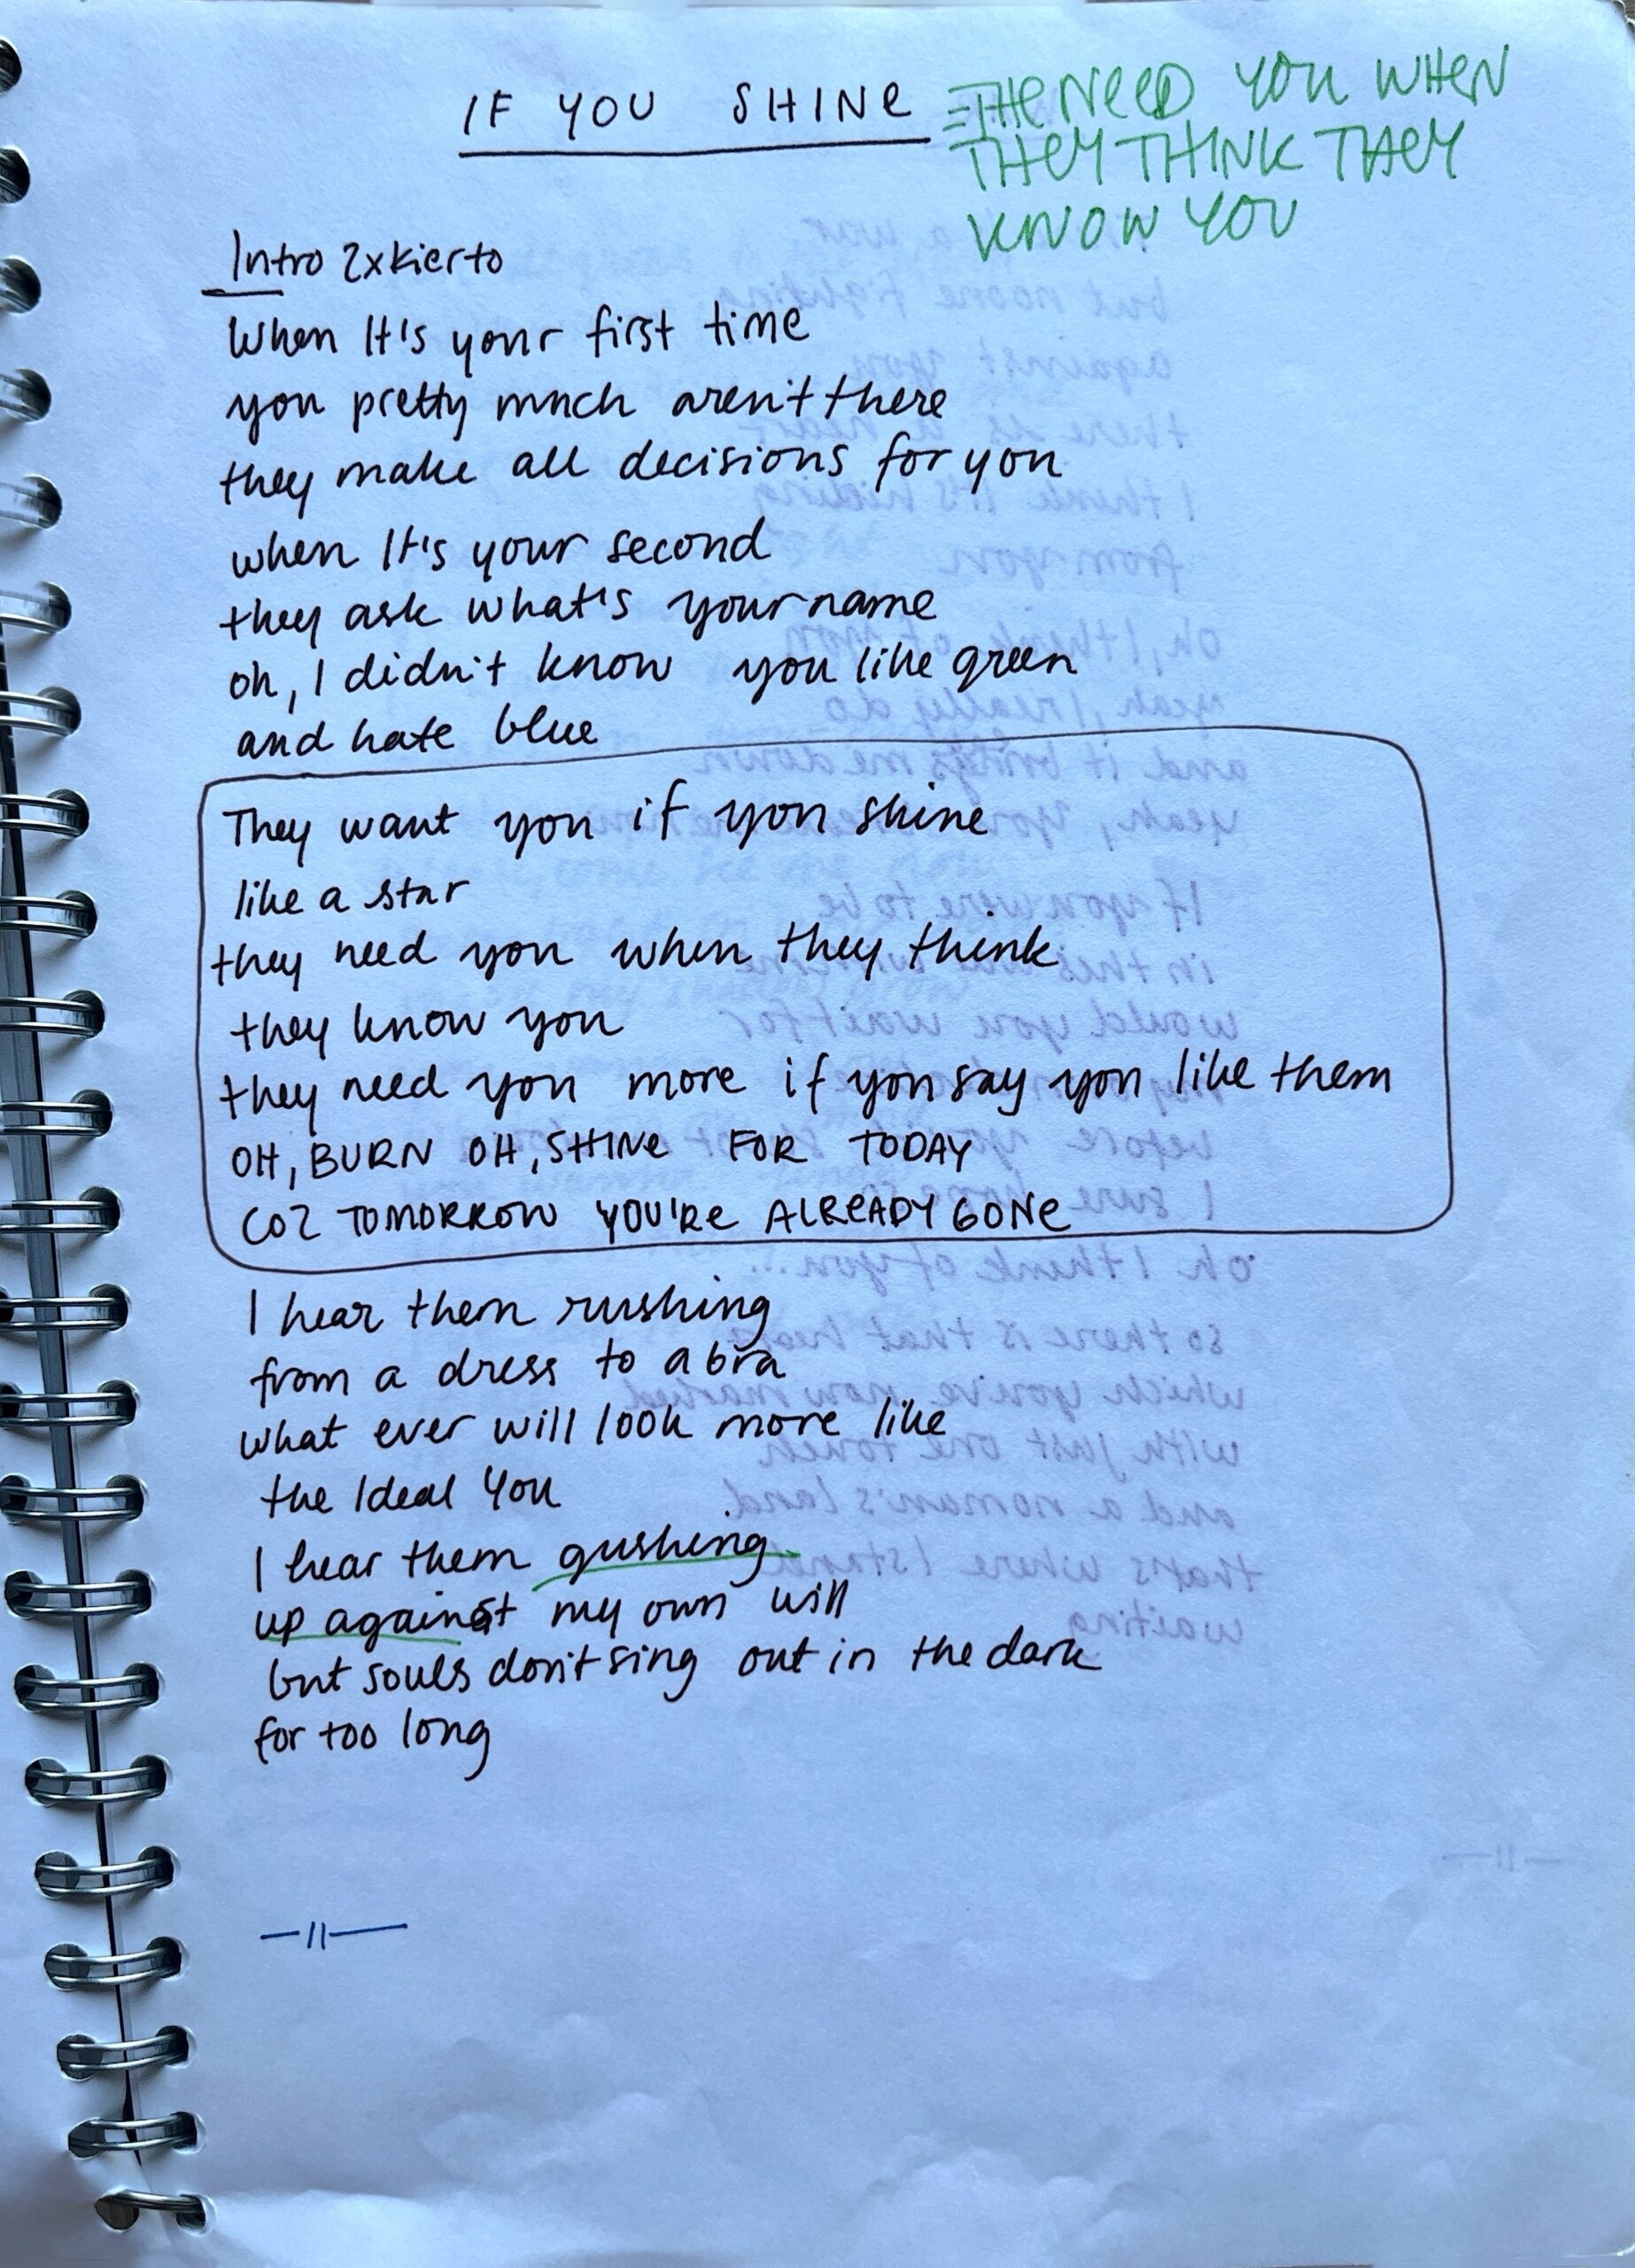 IF YOU SHINE
THE NEED YOU WHEN
THEY THINK THEY
KNOW YOU
Intro 2xkierto
When It's your first time
you pretty much aren't there
they make all decisions for you
when It's your second
they ask what's your name
oh, I didn't know you like green
and hate blue
They want you if you shine
like a star
they need you when they think
they know you
they need you more if you say you like them
OH, BURN OH, SHINE FOR TODAY
COZ TOMORROW YOU'RE ALREADY GONE
I hear them rushing
from a dress to a bra
what ever will look more like
the Ideal You
I hear them gushing
up against my own will
but souls don't sing out in the dark
for too long
—11—